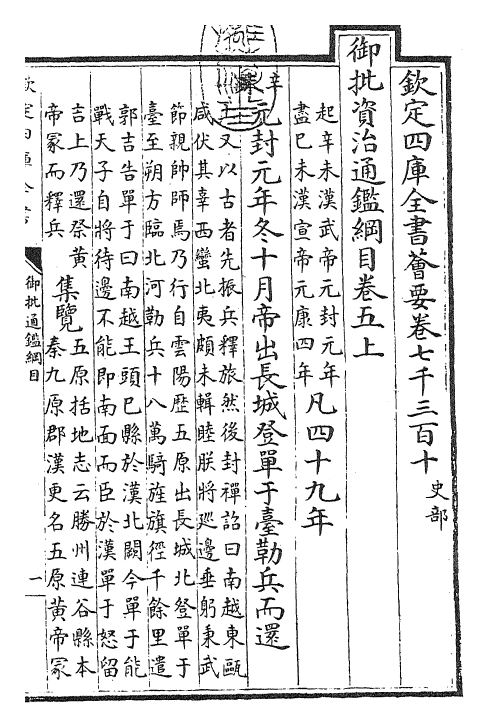 欽定四庫全書薈要卷七千三百十 史部
御批資治通鑑綱目卷五上
起辛未漢武帝元封元年
盡己未漢宣帝元康四年
凡四十九年
辛未
元封元年冬十月帝出長城登單于臺勒兵而還
上又以古者先振兵釋旅然後封禪詔曰南越東甌
咸伏其辜西蠻北夷頗未輯睦朕將廵邊垂躬秉武
節親帥師焉乃行自雲陽歴五原出長城北登單于
臺至朔方臨北河勒兵十八萬騎旌旗徑千餘里遣
郭吉告單于曰南越王頭已縣於漢北闕今單于能
戰天子自將待邊不能即南面而臣於漢單于怒留
吉上乃還祭黄
帝冡而釋兵
集覽
五原括地志云勝州連谷縣本
秦九原郡漢更名五原黄帝冡
欽定四庫全書
御批通鑑綱目
一